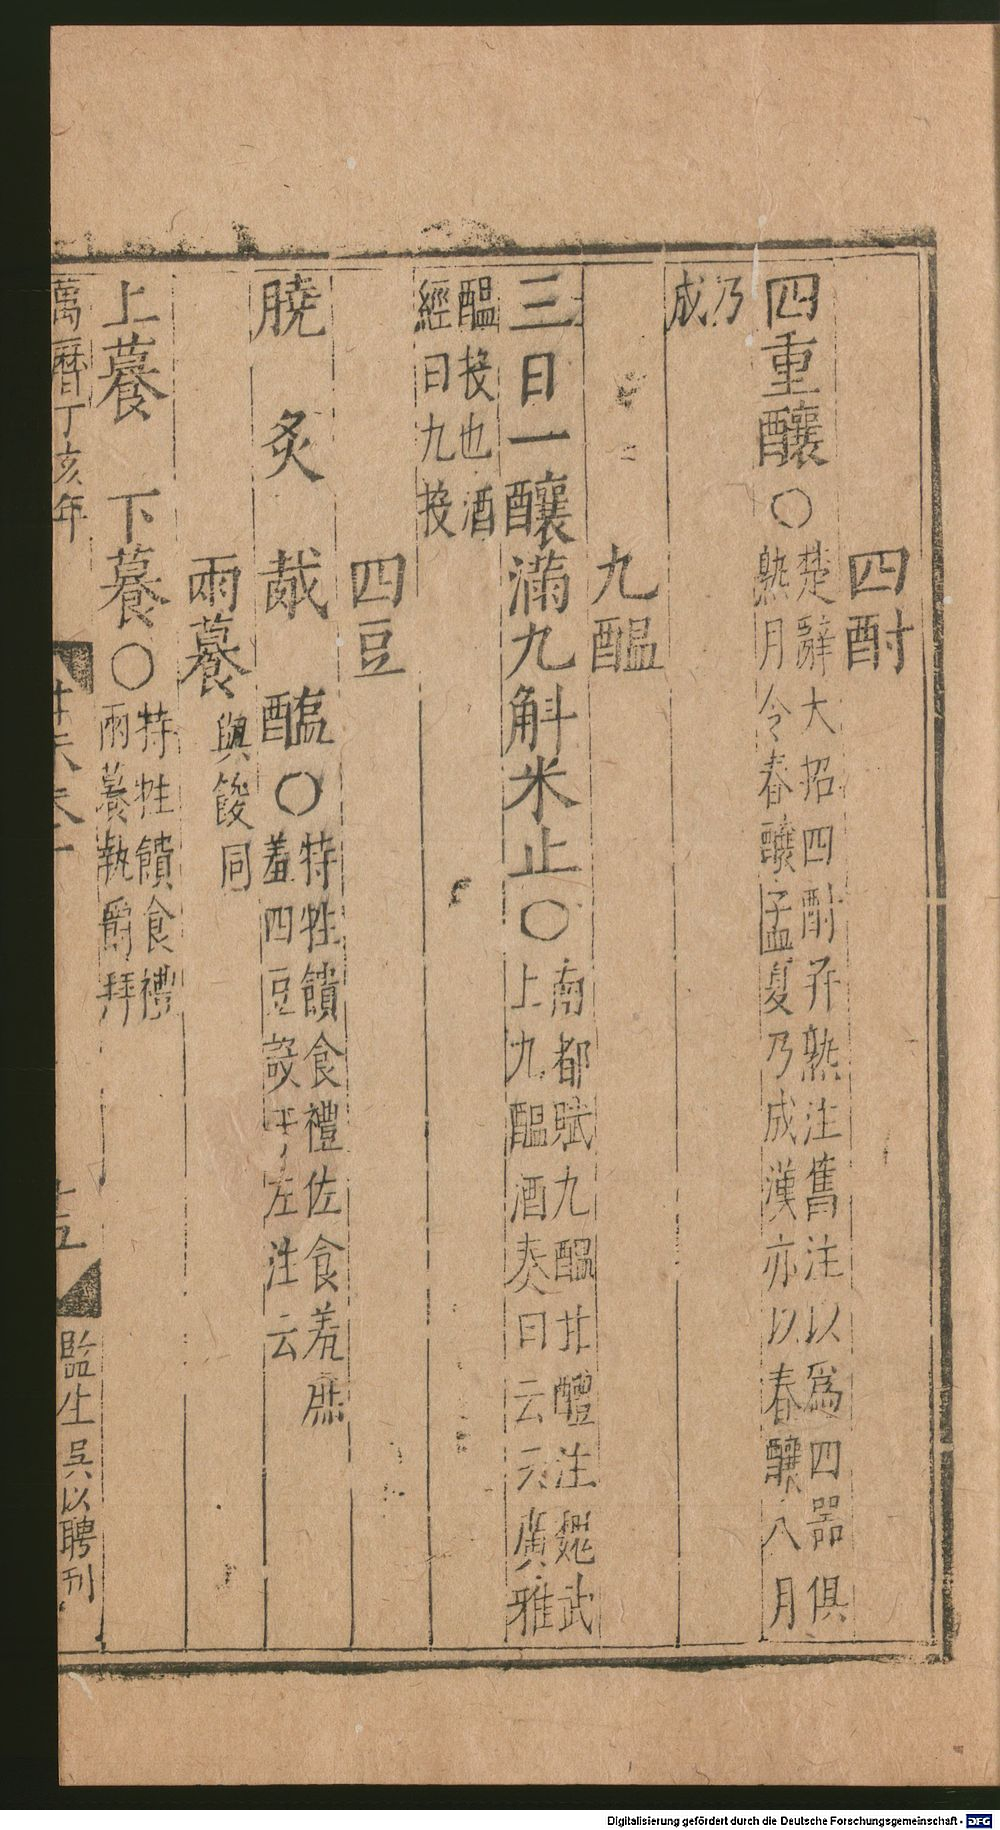 四酎
四重釀○楚辭大招四酎并熟注舊注以爲四器俱
熟月令春釀孟夏乃成漢亦以春釀八月
乃
成
九醞
三日一釀滿九斛米止○南都賦九醞甘醴注魏武
上九醞酒奏曰云云廣雅
醞投也酒
經曰九投
四豆
膮 炙 胾 醢○特牲饋食禮佐食羞庶
羞四豆設于左注云
兩養與餕同
上養 下養○特牲饋食禮
兩養執爵拜
萬曆丁亥年
十五
監生吳以聘刊
Digitalisierung gefördert durch die Deutsche Forschungsgemeinschaft - DFG